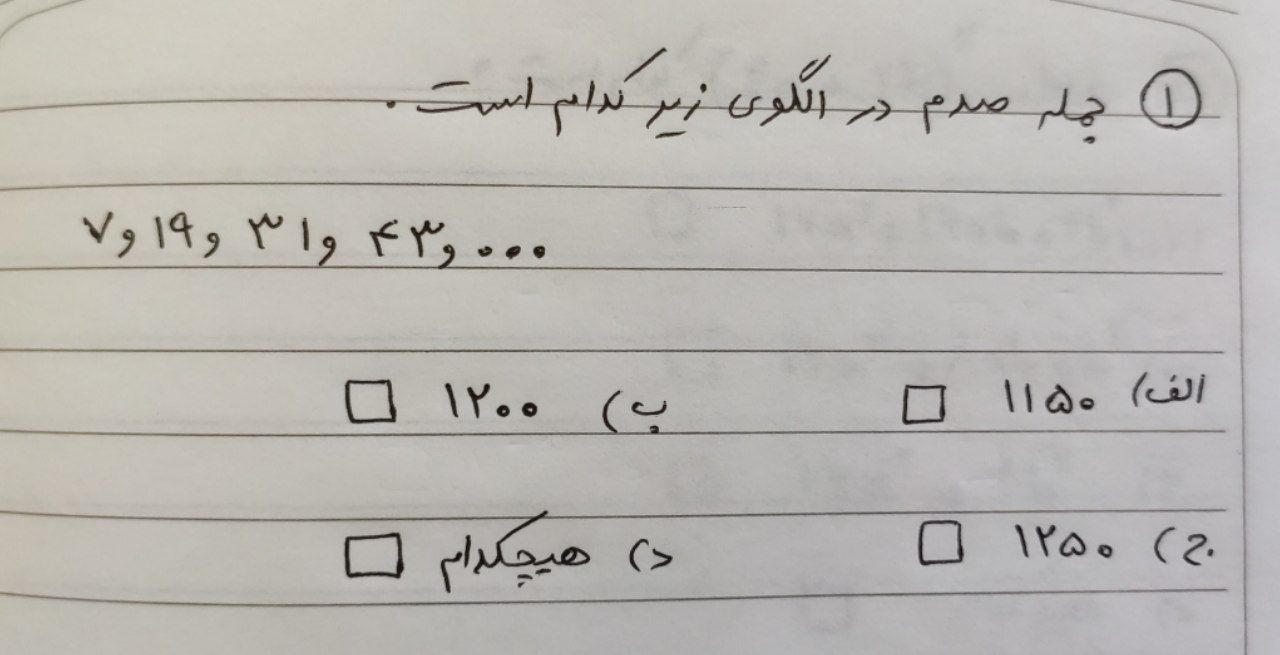 ① جمله صدم در الگوی زیر کدام است.
۷ و ۱۹ و ۳۱ و ۴۳ و ...
الف) ۱۱۵۰ □ ب) ۱۲۰۰ □
ج) ۱۲۵۰ □ د) هیچکدام □